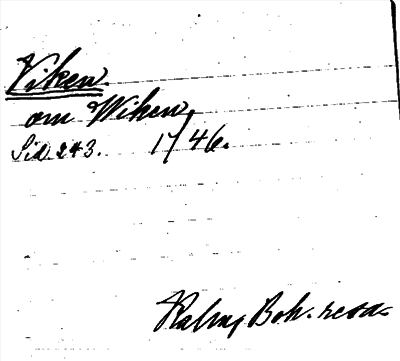 Viken.
om Wiken,
Sid. 243. 1746.
Kalm, Boh. resa.